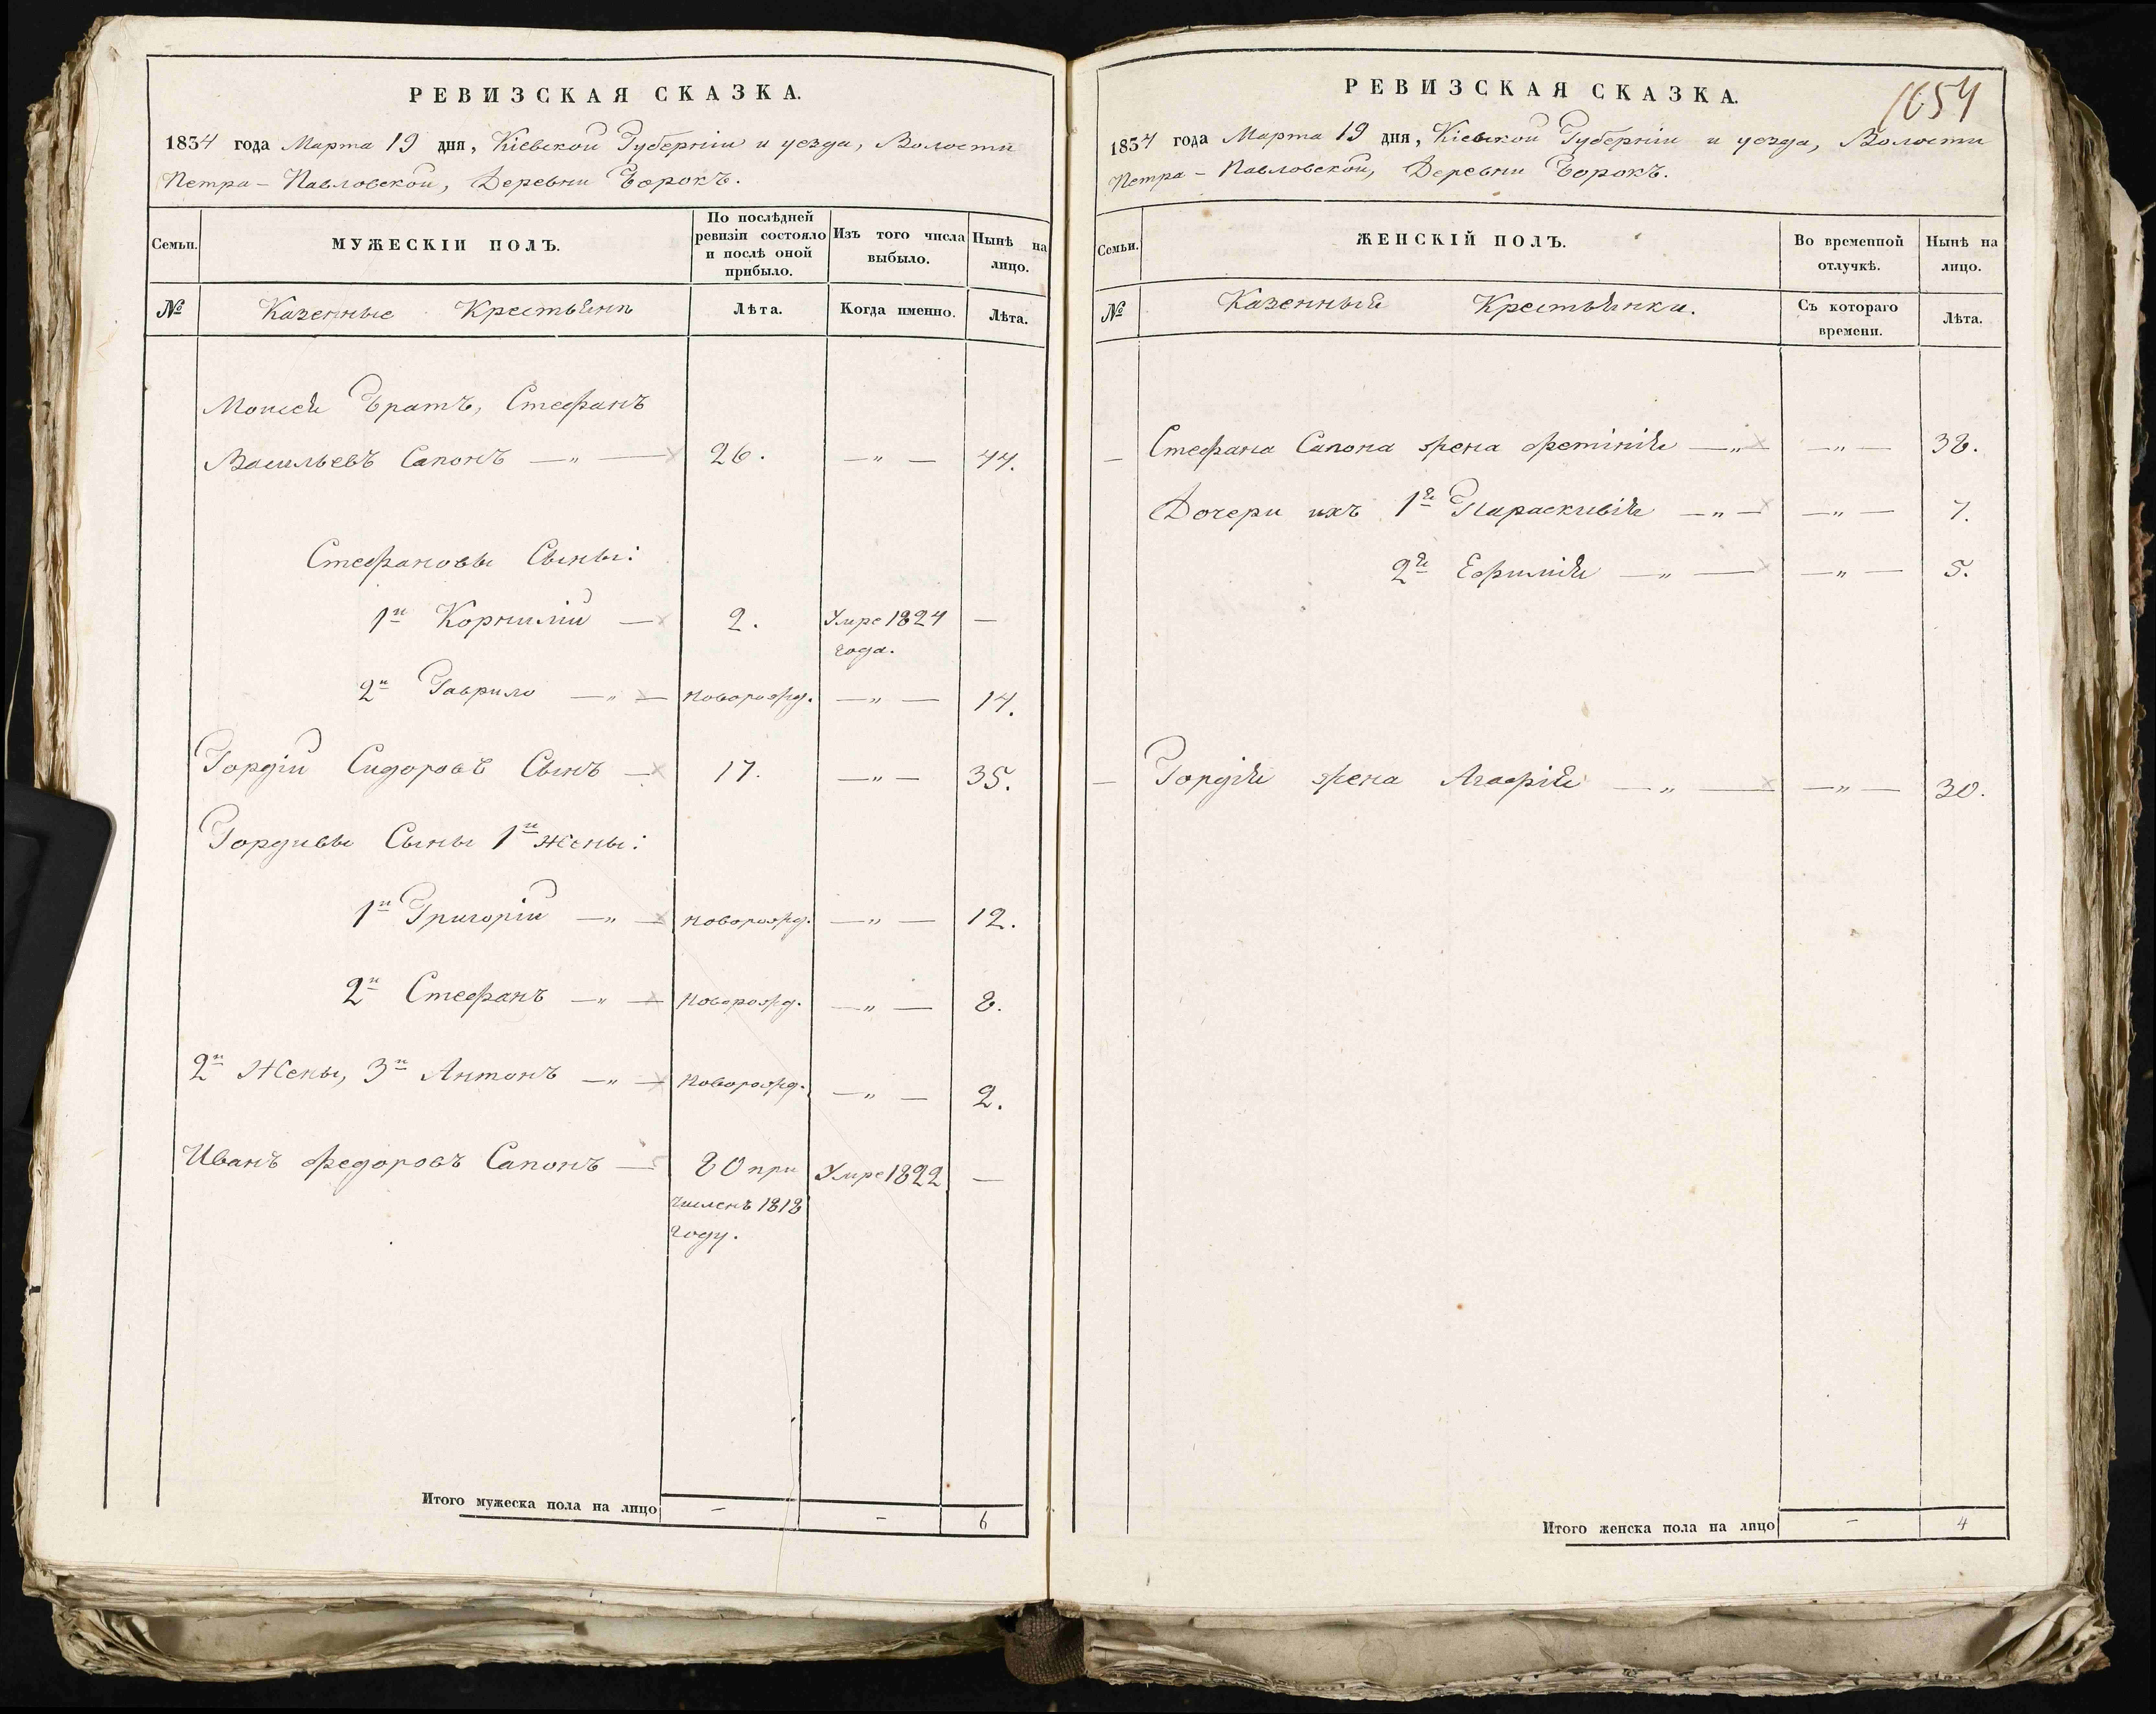 РЕВИЗСКАЯ СКАЗКА.
1834 года Марта 19 дня, Кіевской Губерніи и уезда, Волости
Петра-Павловской, Деревни Борокъ.
Семьи.
МУЖЕСКІЙ ПОЛЪ.
По послѣдней ревизіи состояло и послѣ оной прибыло.
Изъ того числа выбыло.
Нынѣ на лицо.
№
Казенные Крестьяне
Лѣта.
Когда именно.
Лѣта.
Моисея Братъ, Стефанъ
Васильевъ Сапонъ — „ — 26. — „ — 44.
Стефановы Сыны:
1й Корнилій — 2. Умре 1824 —
года.
2й Гаврило — „ — новорожд. — „ — 14.
Гордій Сидоровъ Сынъ — 17. — „ — 35.
Гордиевы Сыны 1й жены:
1й Григорій — „ — новорожд. — „ — 12.
2й Стефанъ — „ — новорожд. — „ — 8.
2й Жены, 3й Антонъ — „ — новорожд. — „ — 2.
Иванъ Федоровъ Сапонъ — 80 при Умре 1822 —
численъ 1818
году.
Итого мужеска пола на лицо — — 6
1654
РЕВИЗСКАЯ СКАЗКА.
1834 года Марта 19 дня, Кіевской Губерніи и уезда, Волости
Петра-Павловской, Деревни Борокъ.
Семьи.
ЖЕНСКІЙ ПОЛЪ.
Во временной отлучкѣ.
Нынѣ на лицо.
№
Казенныя Крестьянки.
Съ котораго времени.
Лѣта.
— Стефана Сапона жена Фетинія — „ — — „ — 38.
Дочери ихъ 1я Параскивія — „ — — „ — 7.
2я Ефимія — „ — — „ — 5.
— Гордія жена Агафія — „ — — „ — 30.
Итого женска пола на лицо — 4